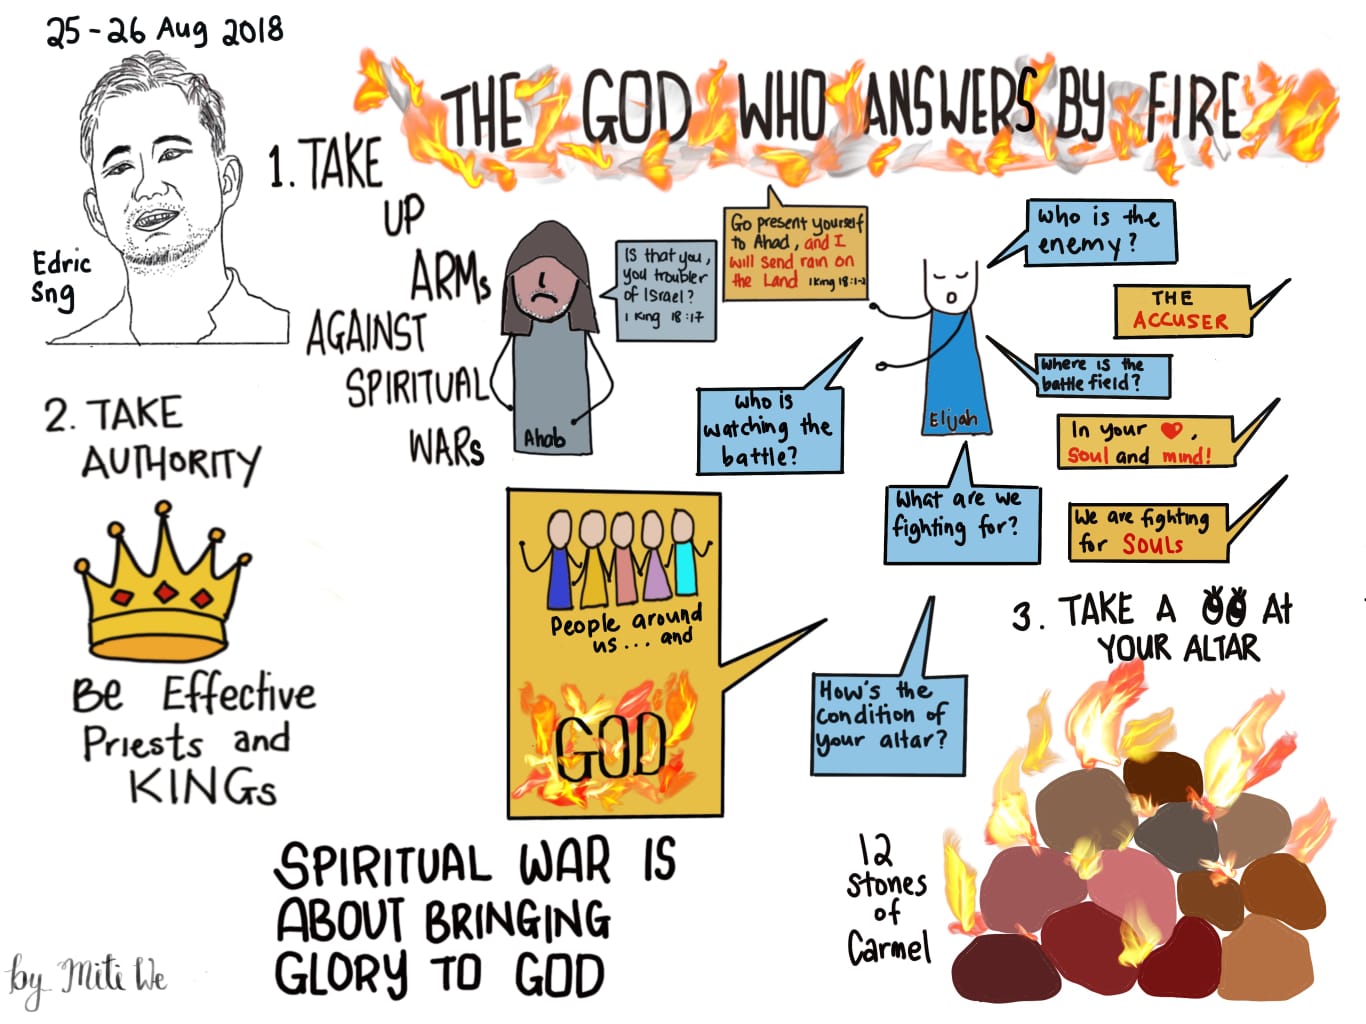 25-26 Aug 2018
THE GOD WHO ANSWERS BY FIRE
Edric
Sng
1. TAKE
UP
ARMs
AGAINST
SPIRITUAL
WARs
Ahab
Is that you,
you troubler
of Israel?
1 King 18:17
Go present yourself
to Ahad, and I
will send rain on
the Land 1King 18:1-2
Elijah
Who is the
enemy?
THE
ACCUSER
Where is the
battle field?
In your ❤,
Soul and mind!
What are we
fighting for?
We are fighting
for SOULs
Who is
watching the
battle?
People around
us... and
GOD
2. TAKE
AUTHORITY
Be Effective
Priests and
KINGs
3. TAKE A 👀 At
YOUR ALTAR
How's the
condition of
your altar?
12
Stones
of
Carmel
SPIRITUAL WAR IS
ABOUT BRINGING
GLORY TO GOD
by Miti We